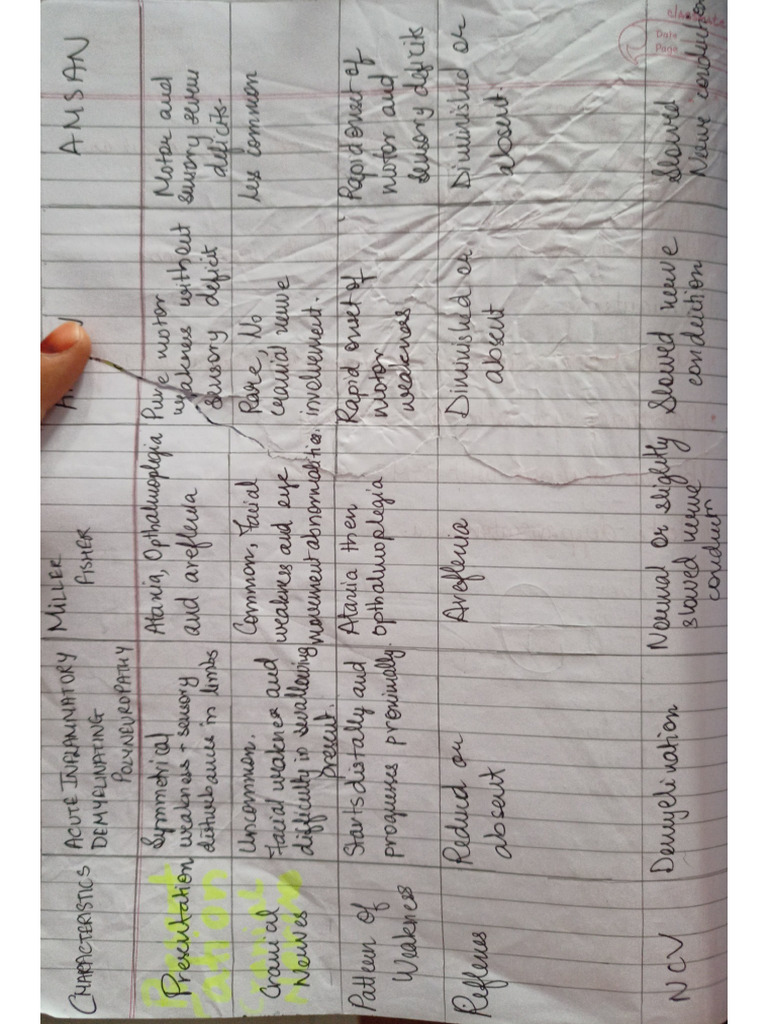 CHARACTERISTICS
ACUTE INFLAMMATORY
DEMYELINATING
POLYNEUROPATHY
MILLER
FISHER
AMSAN
Presentation
Symmetrical
weakness + sensory
disturbance in limbs
Ataxia, Opthalmoplegia
and areflexia
Pure motor
weakness without
sensory deficit
Motor and
sensory
deficits.
Cranial
Nerves
Uncommon.
Facial weakness and
difficulty in swallowing
present.
Common, Facial
weakness and eye
movement abnormalities.
Rare, No
cranial nerve
involvement.
less common
Pattern of
Weakness
Starts distally and
progresses proximally.
Ataxia then
opthalmoplegia
Rapid onset of
motor
weakness
Rapid onset of
motor and
sensory deficits
Reflexes
Reduced or
absent
Areflexia
Diminished or
absent
Diminished or
absent.
NCV
Demyelination
Normal or slightly
slowed nerve
conductn
Slowed nerve
conduction
Slowed
Nerve conduction
Date
Page